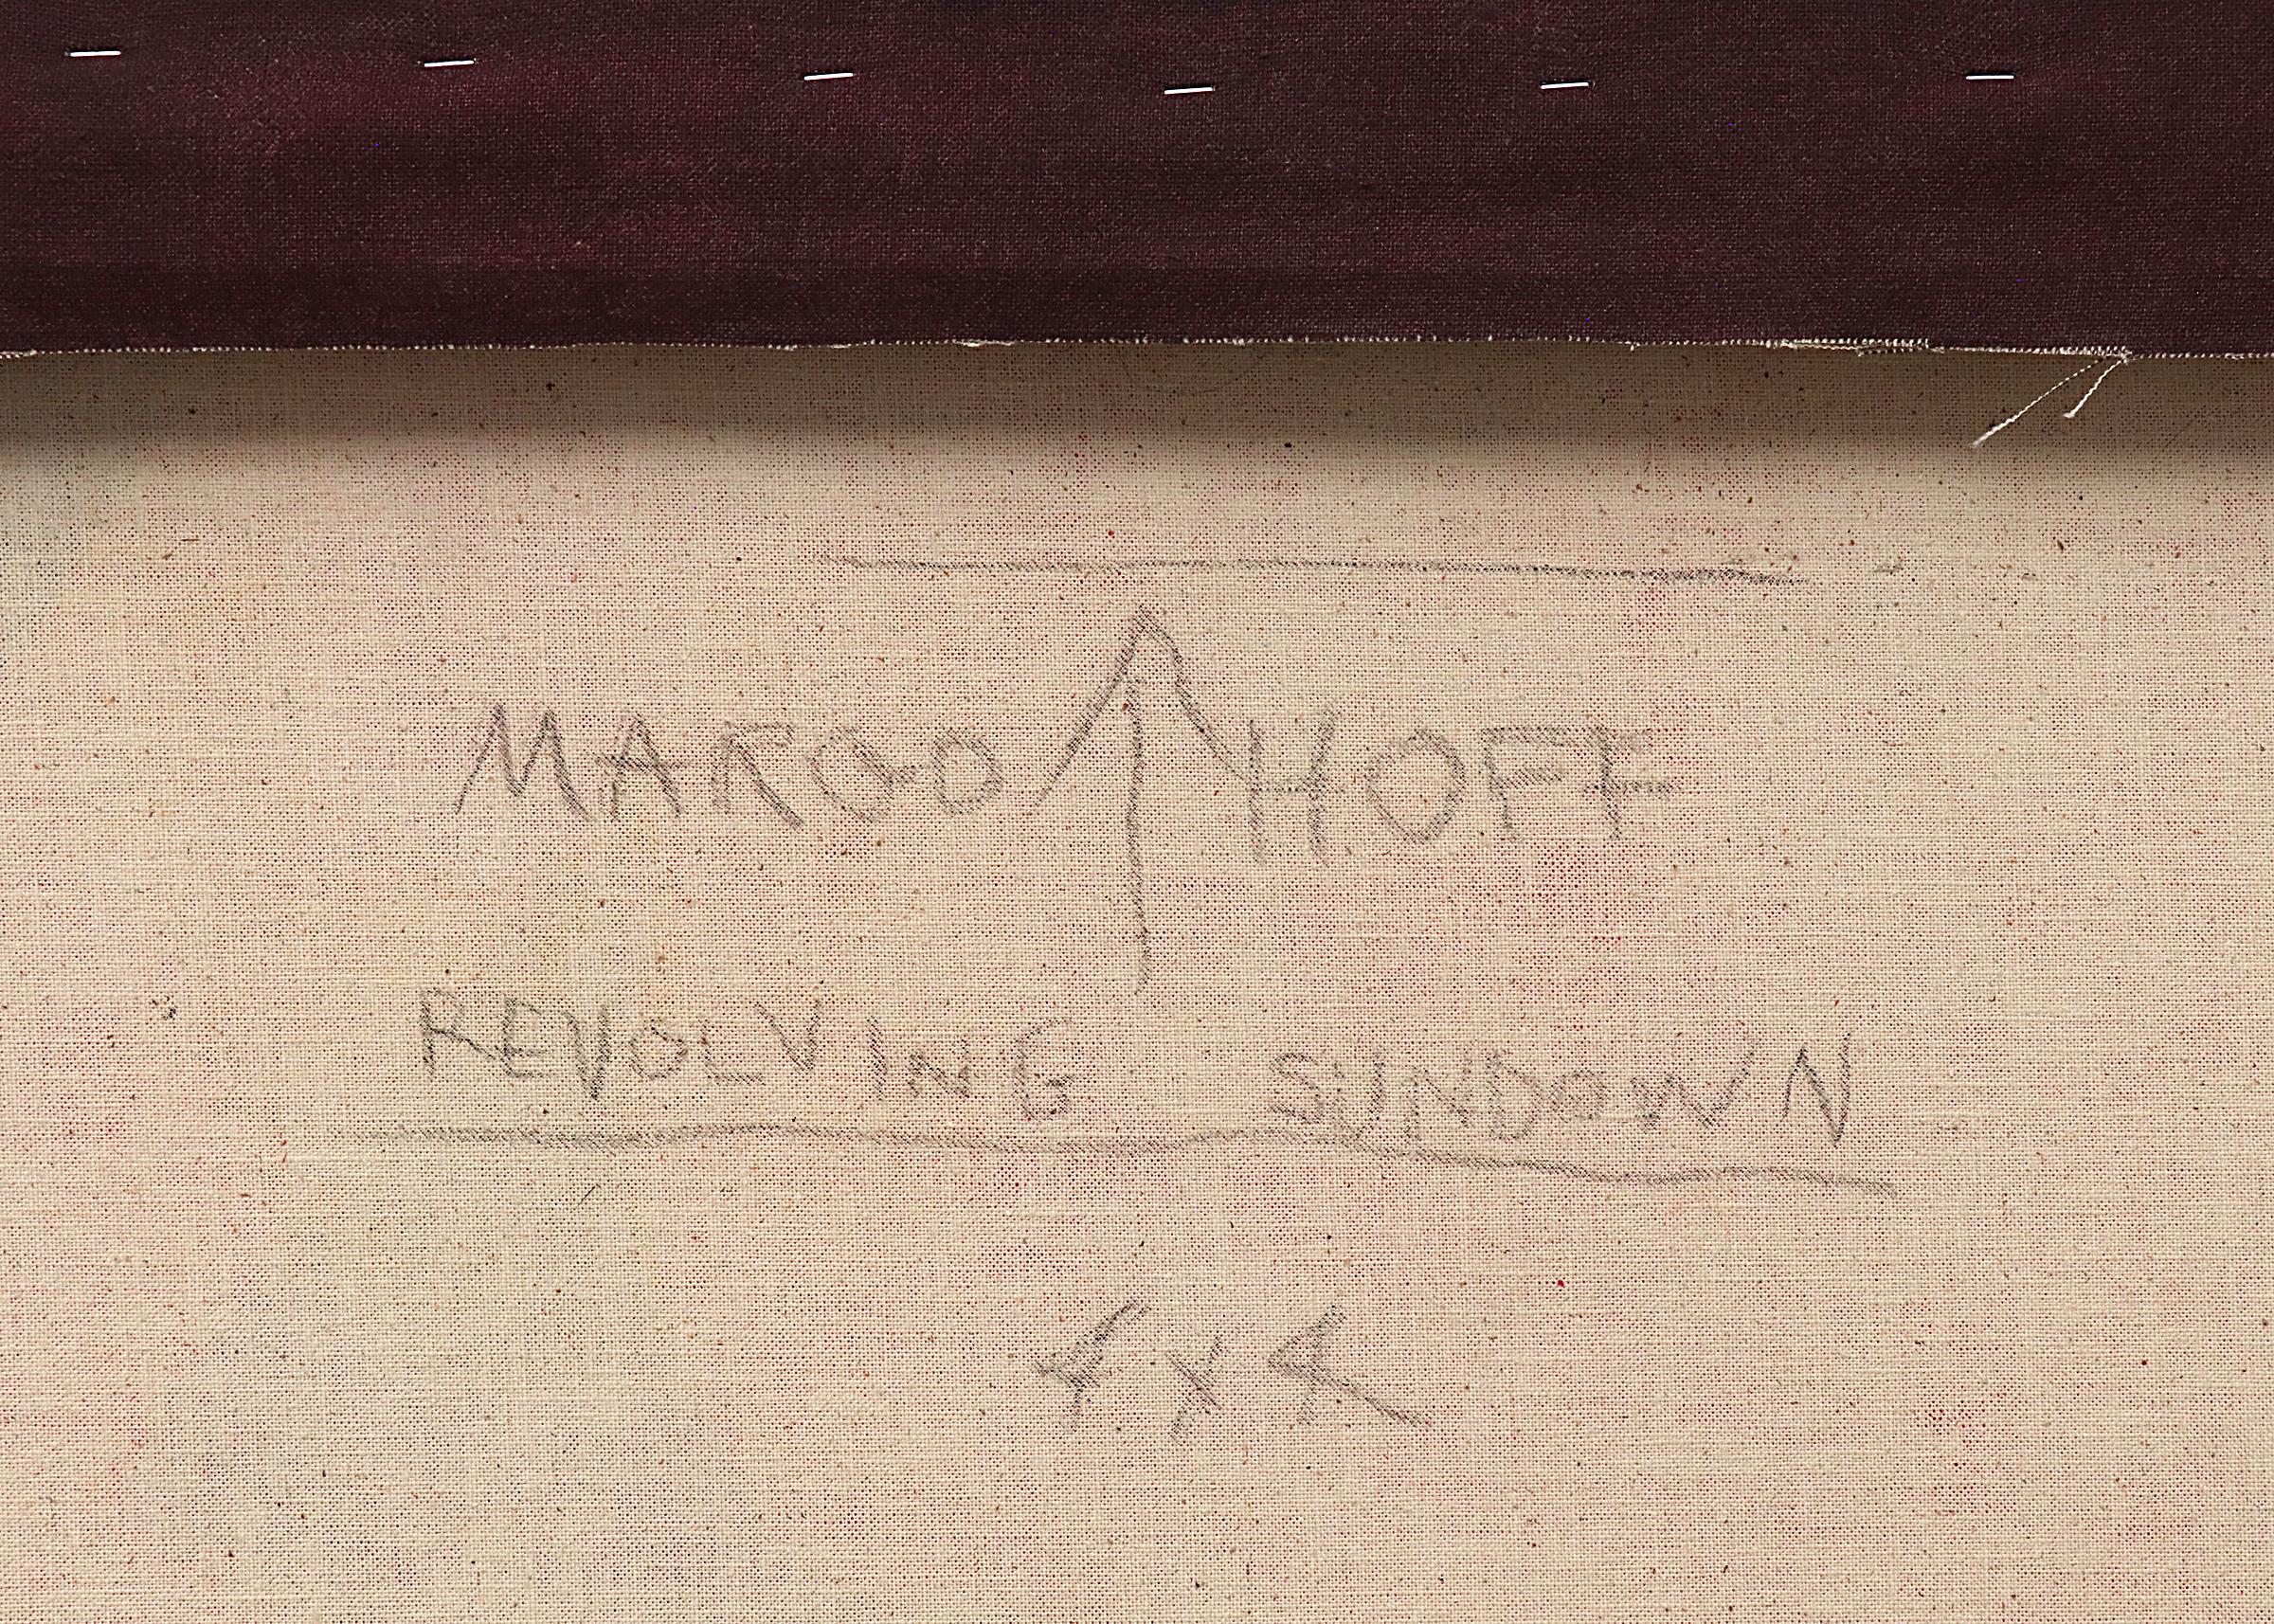 MARGO HOFF
REVOLVING SUNDOWN
4 x 4